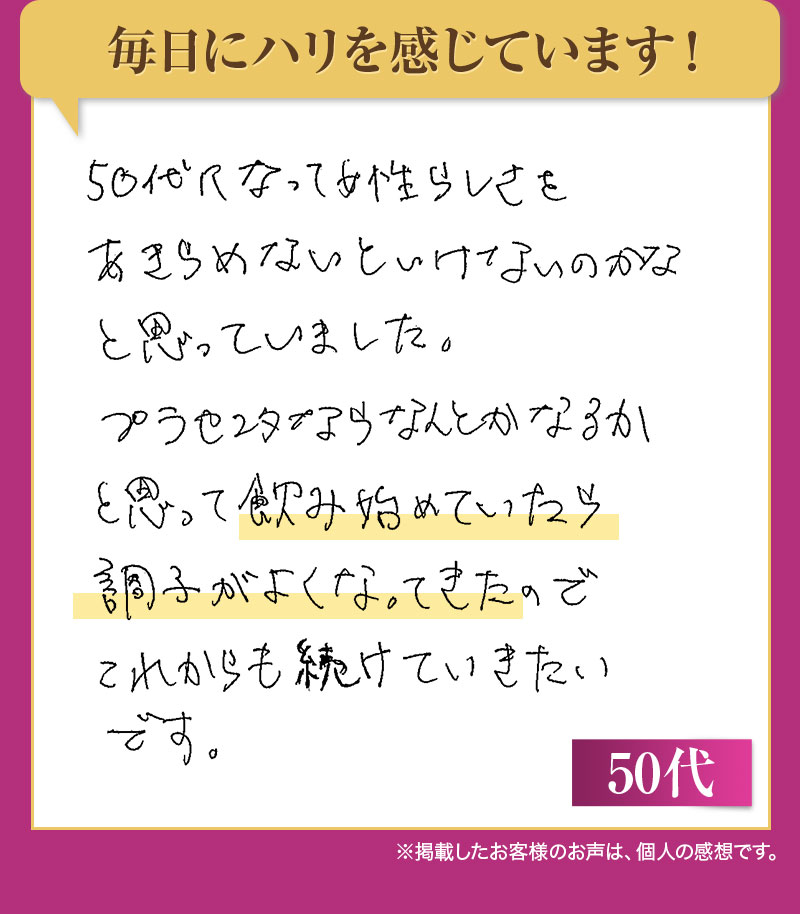 毎日にハリを感じています！
50代になって女性らしさを
あきらめないといけないのかな
と思っていました。
プラセンタならなんとかなるか
と思って飲み始めていたら
調子がよくなってきたので
これからも続けていきたい
です。
50代
※掲載したお客様のお声は、個人の感想です。